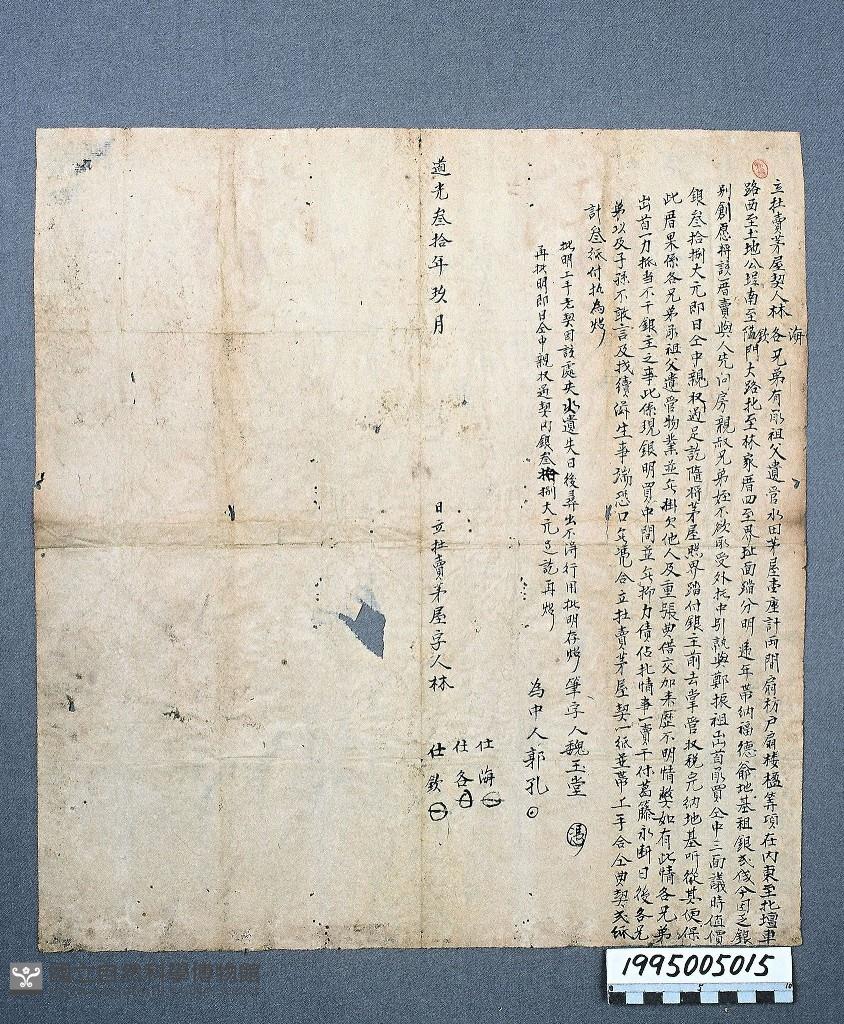 立杜賣茅屋契人林海各欽兄弟有承祖父遺管水田茅屋壹座計兩間扇枋戶扇楼楹等項在內東至北壇車
路西至土地公埕南至隘門大路北至林家厝四至界址面踏分明遞年帶納福德爺地基租銀贰伐今因乏銀
別創愿將該厝賣與人先问房親叔兄弟姪不欲承受外托中引就與鄭振祖出首承買仝中三面議時值價
銀叁拾捌大元即日仝中親收過足訖隨將茅屋照界踏付銀主前去掌管收稅完納地基听從其便保
此厝果係各兄弟承祖父遺管物業並無掛欠他人及重張典借交加来歷不明情獘如有此情各兄弟
出首一力抵当不干銀主之事此係現銀明買中間並無抑力債佔扎情事一賣千休葛藤永断日後各兄
弟以及子孫不敢言及找續滋生事端恐口無憑合立杜賣茅屋契一紙並帶上手合仝典契贰紙
計叁紙付执為炤
批明上手老契因該處失火遺失日後尋出不淂行用批明存炤 筆字人魏玉堂
再批明即日仝中親收過契內銀叁拾捌大元足訖再炤
為中人郭孔
道光叁拾年玖月 日立杜賣茅屋字人林
仕海
仕各
仕欽
國立自然科學博物館
1995005015
5
10